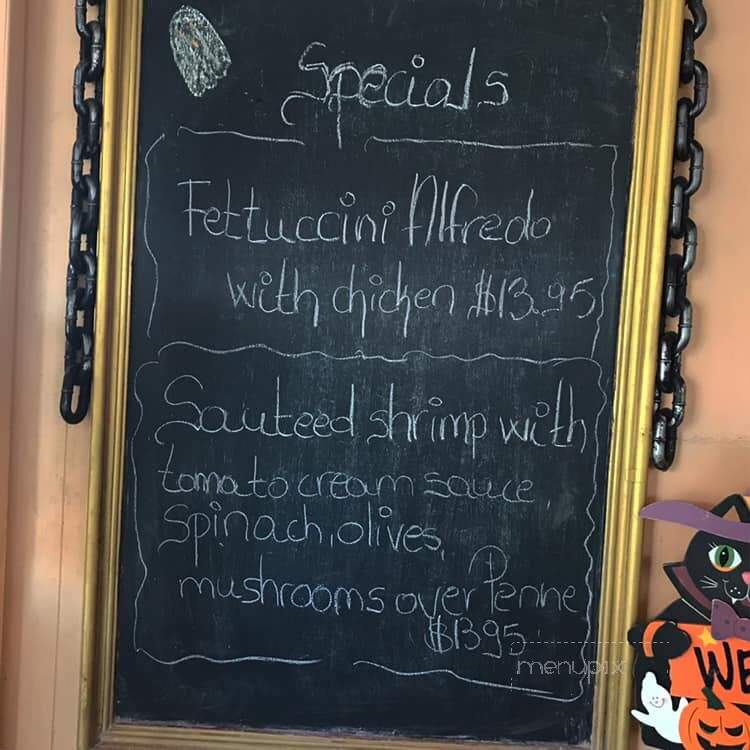 Specials
Fettuccini Alfredo
with chicken $13.95
Sauteed shrimp with
tomato cream sauce
spinach, olives,
mushrooms over Penne
$1395
menupix
WE